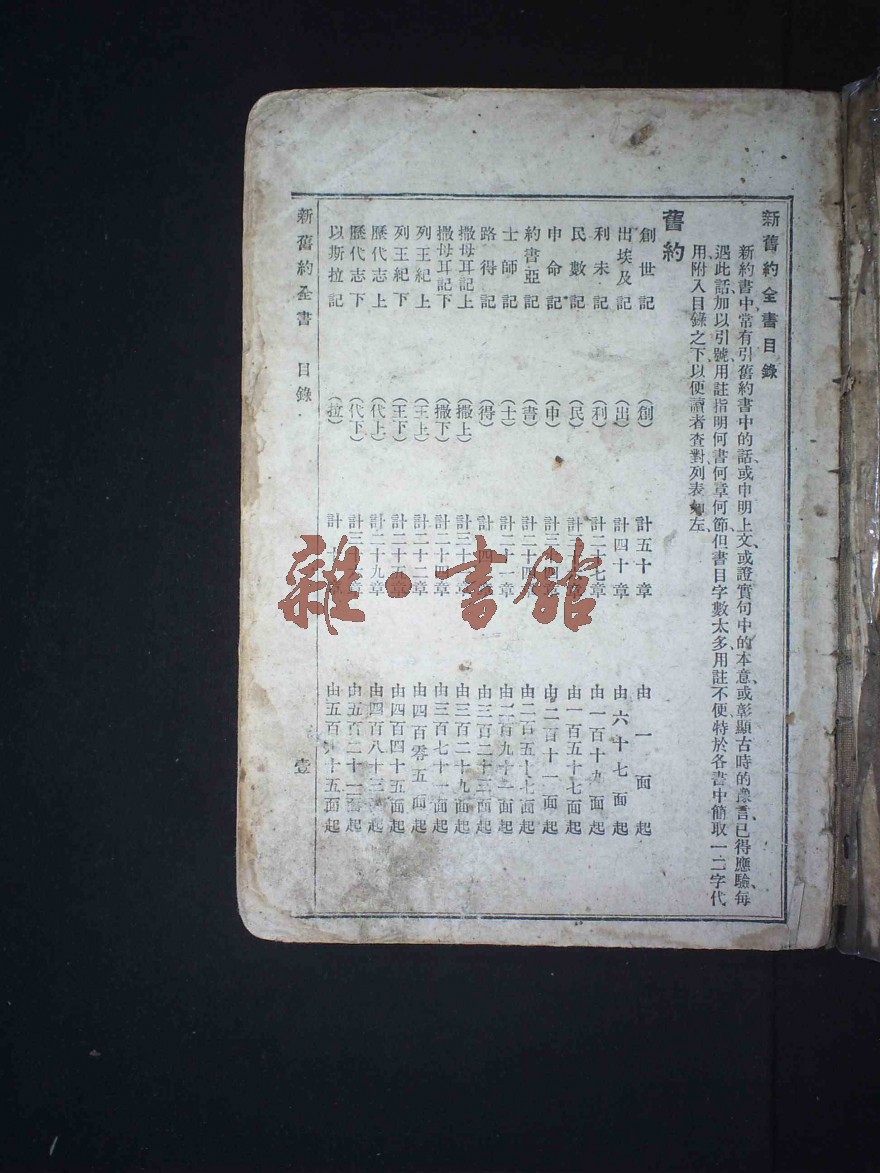 新舊約全書目錄
新約書中常有引舊約書中的話、或申明上文、或證實句中的本意、或彰顯古時的豫言、已得應驗、每
遇此話、加以引號、用註指明何書何章何節、但書目字數太多、用註不便、特於各書中簡取一二字代
用、附入目錄之下、以便讀者查對、列表如左、
舊約
創世記 (創) 計五十章 由一面起
出埃及記 (出) 計四十章 由六十七面起
利未記 (利) 計二十七章 由一百十九面起
民數記 (民) 計三 章 由一百五十七面起
申命記 (申) 計三十四章 由二百十一面起
約書亞記 (書) 計二十四章 由二百五十七面起
士師記 (士) 計二十 章 由二百九十一面起
路得記 (得) 計四章 由三百二十三面起
撒母耳記上 (撒上) 計三十 章 由三百二十九面起
撒母耳記下 (撒下) 計二十四章 由三百七十一面起
列王紀上 (王上) 計二十二章 由四百零五面起
列王紀下 (王下) 計二十五章 由四百四十五面起
歷代志上 (代上) 計二十九章 由四百八十三面起
歷代志下 (代下) 計三十 章 由五百二十一面起
以斯拉記 (拉) 計十章 由五百六十五面起
新舊約全書 目錄 壹
雜·書館